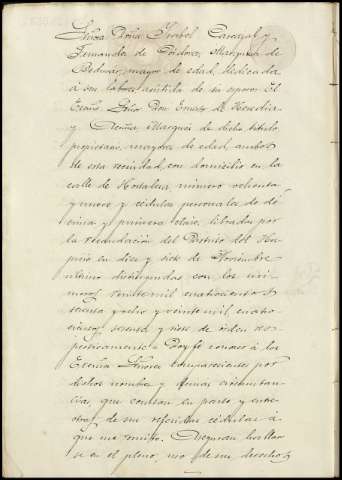 Señora Doña Isabel Carvajal y
Fernandez de Córdova, Marquesa de
Bedmar, mayor de edad, dedicada
á sus labores asistida de su esposo El
Excmo Señor Don Ernesto de Heredia
y Acuña Marqués de dicho título,
propietario, mayor de edad, ambos
de esta vecindad, con domicilio en la
calle de Hortaleza, número ochenta
y nueve y cédulas personales de dé
cima y primera clase, libradas por
la recaudación del Distrito del Hos
picio en diez y siete de Noviembre
último distinguidas con los núme
ros veinte mil cuatrocientos
sesenta y ocho y veinte mil cuatro
cientos sesenta y siete de orden res
pectivamente. Doy fé conocer á los
Excmos Señores comparecientes por
dichos nombres y demás circunstan
cias, que constan en parte, y entre
otras, de sus referidas cédulas á
que me remito. Aseguran hallar
se en el pleno uso de sus derechos